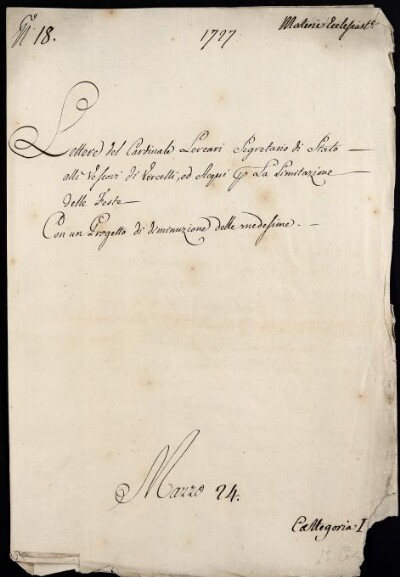 N.º 18.
1727.
Materie Ecclesiast.e
Lettere del Cardinale Lercari Segretario di Stato
alli Vescovi di Vercelli, ed Acqui p La Limitazione
delle Feste
Con un Progetto di diminuzione delle medesime. -
Mazzo 24.
Cattegoria I